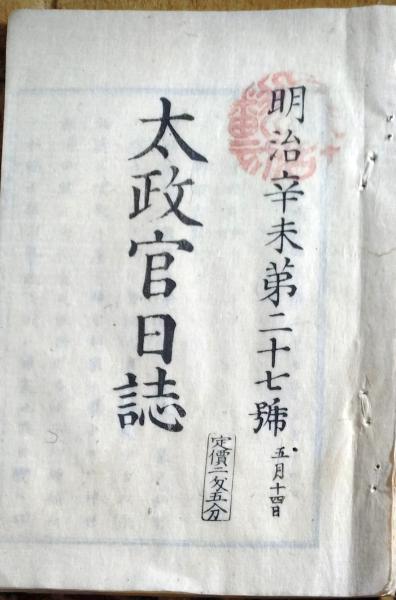 明治辛未第二十七號
五月十四日
太政官日誌
定價二匁五分